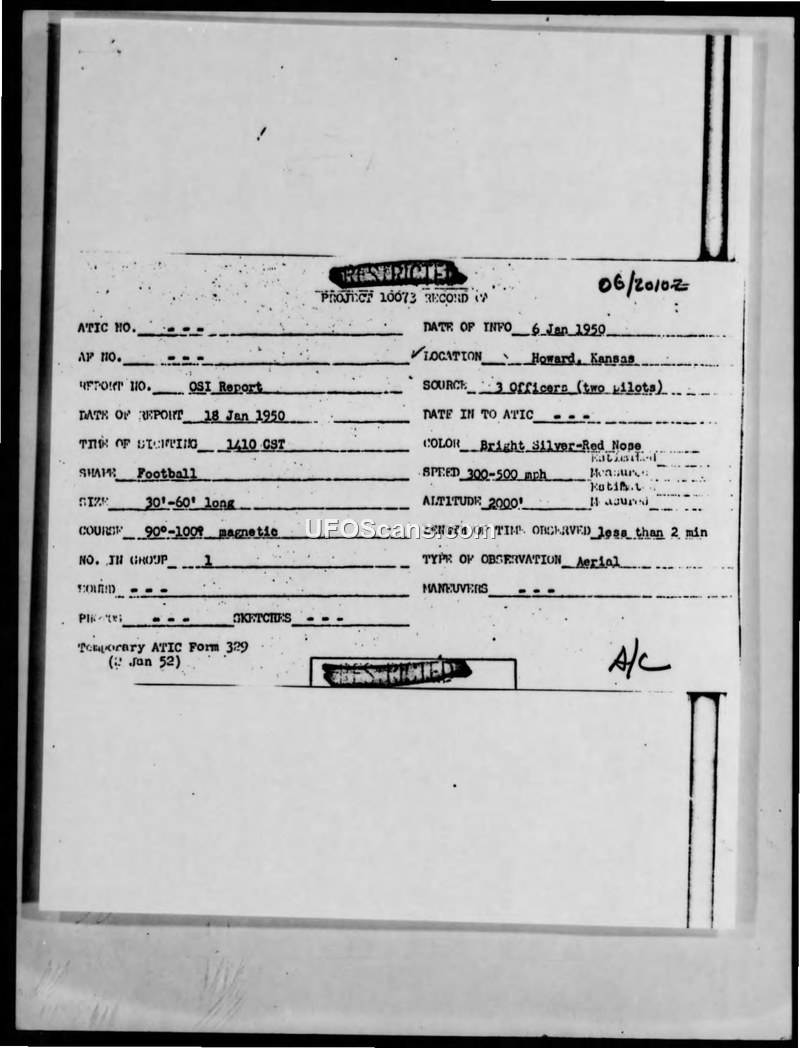 RESTRICTED
06/2010Z
PROJECT 10073 RECORD
ATIC NO. - - - DATE OF INFO 6 Jan 1950
AF NO. - - - ✓LOCATION Howard, Kansas
REPORT NO. OSI Report SOURCE 3 Officers (two pilots)
DATE OF REPORT 18 Jan 1950 DATE IN TO ATIC - - -
TIME OF SIGHTING 1410 CST COLOR Bright Silver-Red Nose
SHAPE Football SPEED 300-500 mph Estimated Measured
SIZE 30'-60' long ALTITUDE 2000' Measured
COURSE 90°-100° magnetic LENGTH OF TIME OBSERVED less than 2 min
UFOScans.com
NO. IN GROUP 1 TYPE OF OBSERVATION Aerial
SOUND - - - MANEUVERS - - -
PHOTOS - - - SKETCHES - - -
Temporary ATIC Form 329
(2 Jan 52)
A/C
RESTRICTED